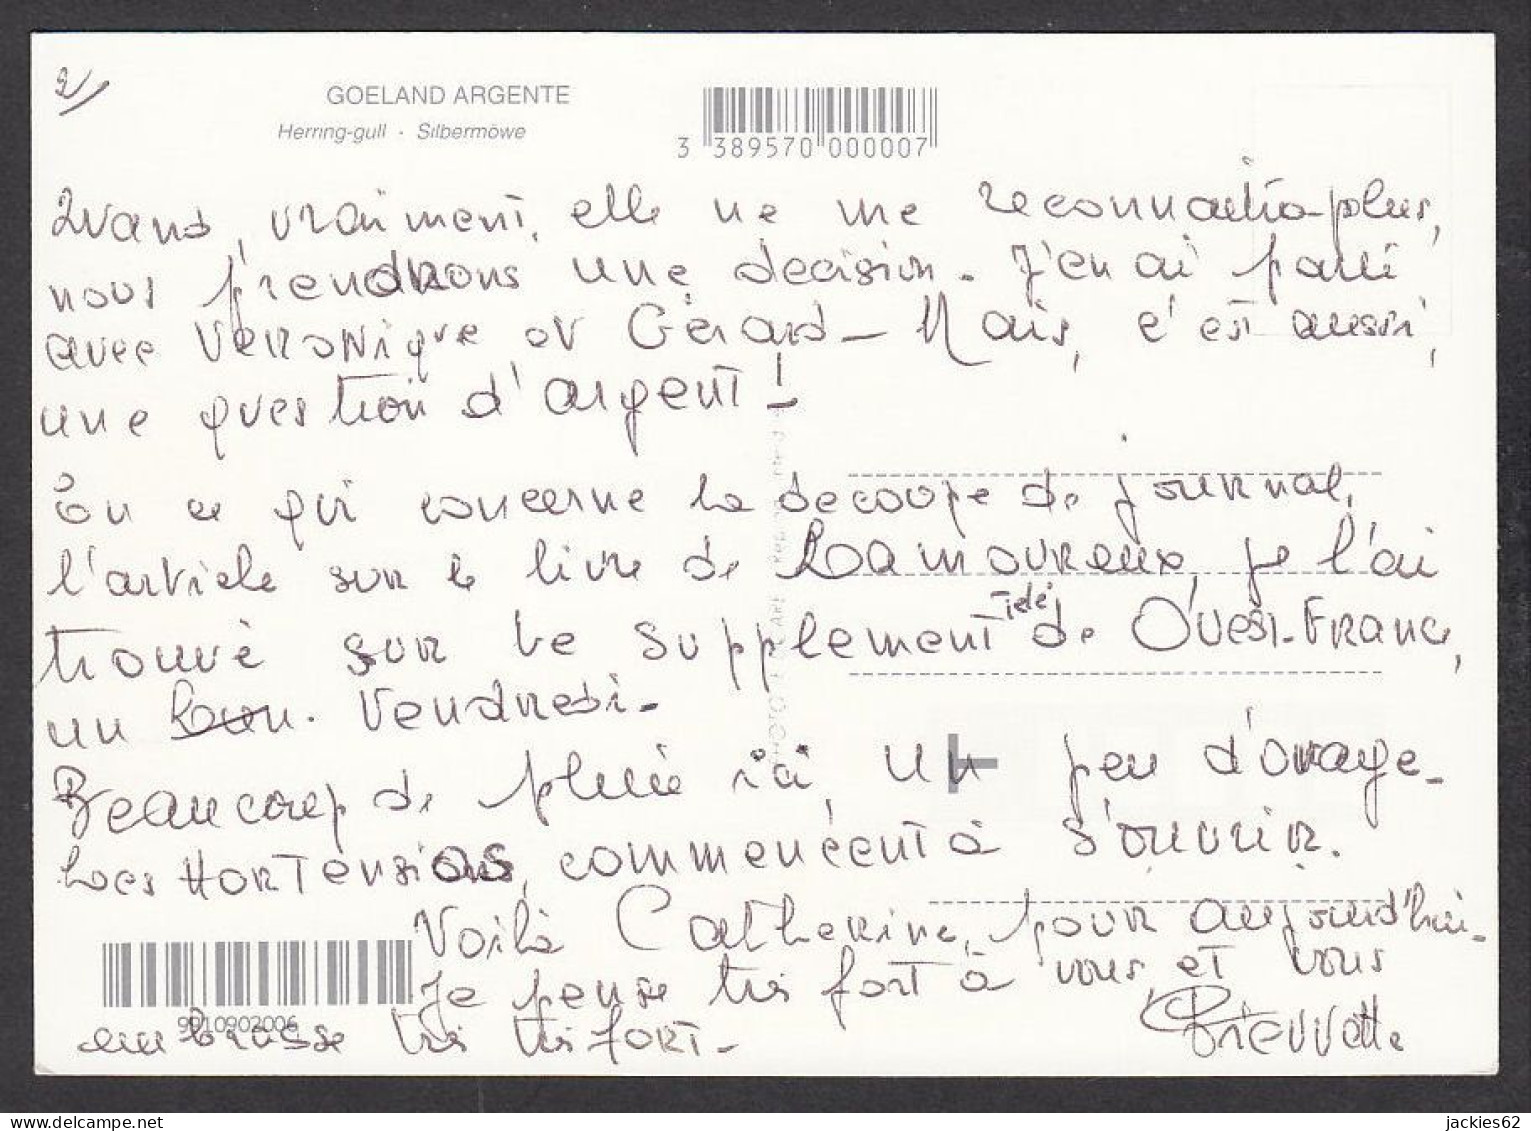 2/
GOELAND ARGENTE
Herring-gull · Silbermöwe
3 389570 000007
Quand, vraiment, elle ne me reconnaitra plus,
nous prendrons une decision. J'en ai parlé
avec Veronique et Gérard - Mais, c'est aussi,
une question d'argent !
En ce qui concerne la decoupe de journal,
l'article sur le livre de Lamoureux, je l'ai
trouvé sur le supplement télé de Ouest-France,
un Vendredi -
Beaucoup de pluie ici, un peu d'orage -
Les Hortensias, commencent à s'ouvrir.
Voilà Catherine, pour aujourd'hui -
Je pense très fort à vous, et vous
9910902006
embrasse très très fort -
Pierrette
jackies62